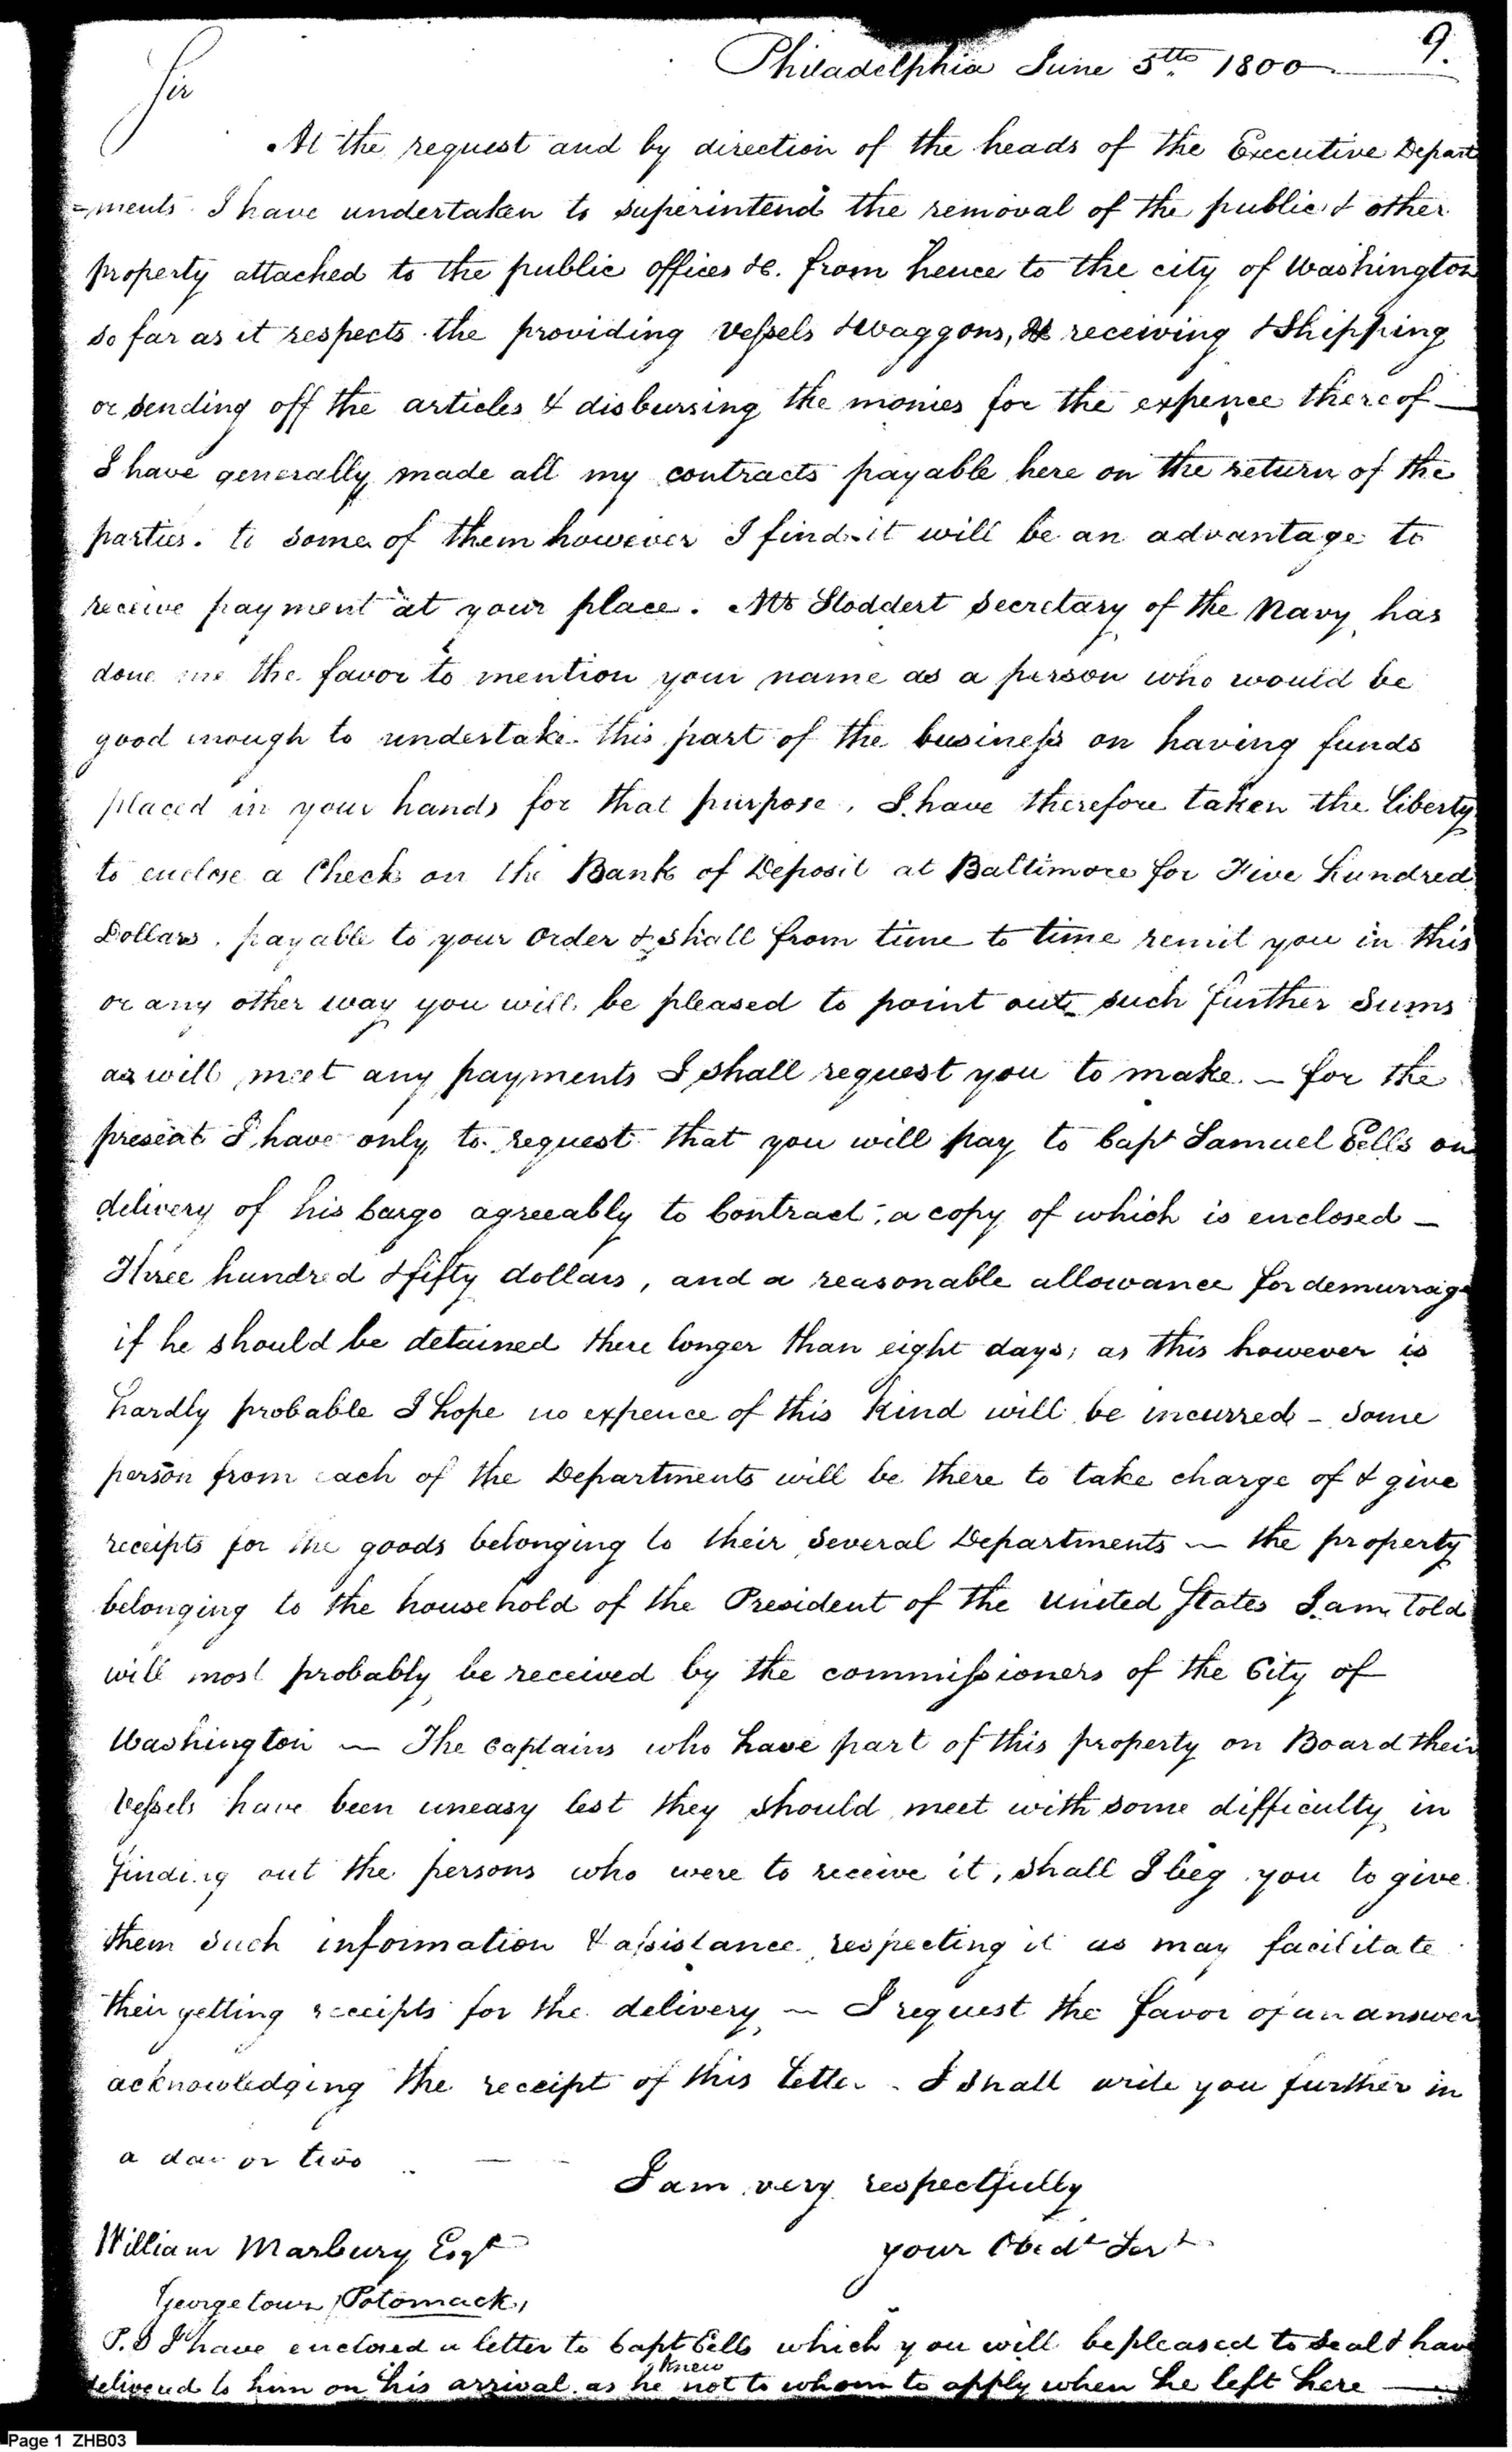 9.
Philadelphia June 5th 1800
Sir
At the request and by direction of the heads of the Executive Depart
=ments I have undertaken to superintend the removal of the public & other
property attached to the public offices &c. from hence to the city of Washington
so far as it respects the providing Vessels & waggons, receiving & Shipping
or sending off the articles & disbursing the monies for the expence thereof —
I have generally made all my contracts payable here on the return of the
parties. to some of them however I find it will be an advantage to
receive payment at your place. Mr Stoddert Secretary of the Navy has
done me the favor to mention your name as a person who would be
good enough to undertake this part of the business on having funds
placed in your hands for that purpose, I have therefore taken the liberty
to enclose a Check on the Bank of Deposit at Baltimore for Five hundred
Dollars, payable to your Order & shall from time to time remit you in this
or any other way you will be pleased to point out such further Sums
as will meet any payments I shall request you to make. — for the
present I have only to request that you will pay to Capt Samuel Eells on
delivery of his Cargo agreeably to Contract, a copy of which is enclosed —
Three hundred & fifty dollars, and a reasonable allowance for demurrage
if he should be detained there longer than eight days; as this however is
hardly probable I hope no expence of this kind will be incurred — Some
person from each of the Departments will be there to take charge of & give
receipts for the goods belonging to their several Departments — the property
belonging to the household of the President of the United States I am told
will most probably be received by the commissioners of the City of
Washington — The Captains who have part of this property on Board their
Vessels have been uneasy lest they should meet with some difficulty in
finding out the persons who were to receive it, shall I beg you to give
them such information & assistance respecting it as may facilitate
their getting receipts for the delivery — I request the favor of an answer
acknowledging the receipt of this Letter — I shall write you further in
a day or two —
I am very respectfully
your Obedt Servt
William Marbury Esqr
Georgetown, Potomack,
P.S I have enclosed a letter to Capt Eells which you will be pleased to seal & have
delivered to him on his arrival as he knew not to whom to apply when he left here —
Page 1 ZHB03